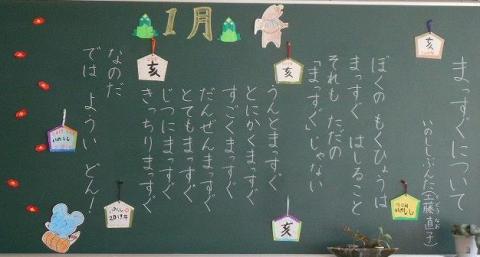 1月
まっすぐについて
いのししぶんた(工藤直子)
くどうなおこ
ぼくの もくひょうは
まっすぐ はしること
それも ただの
「まっすぐ」じゃない
うんとまっすぐ
とにかくまっすぐ
すごくまっすぐ
だんぜんまっすぐ
とてもまっすぐ
じつにまっすぐ
きっちりまっすぐ
なのだ
では ようい どん!
亥
亥
亥
亥
いのしし
いのしし
2019年